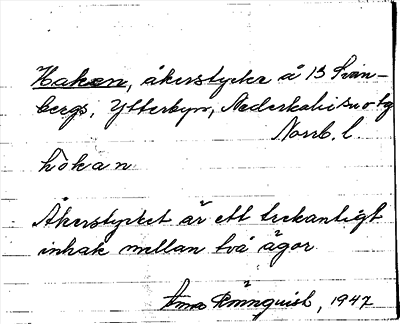 Haken, åkerstycke å 13 Svan-
bergs, Ytterbyn, Nederkalix sn o tg
Norrb. l.
hòkan
Åkerstycket är ett trekantigt
inhak mellan två ägor.
Rönnquist, 1947